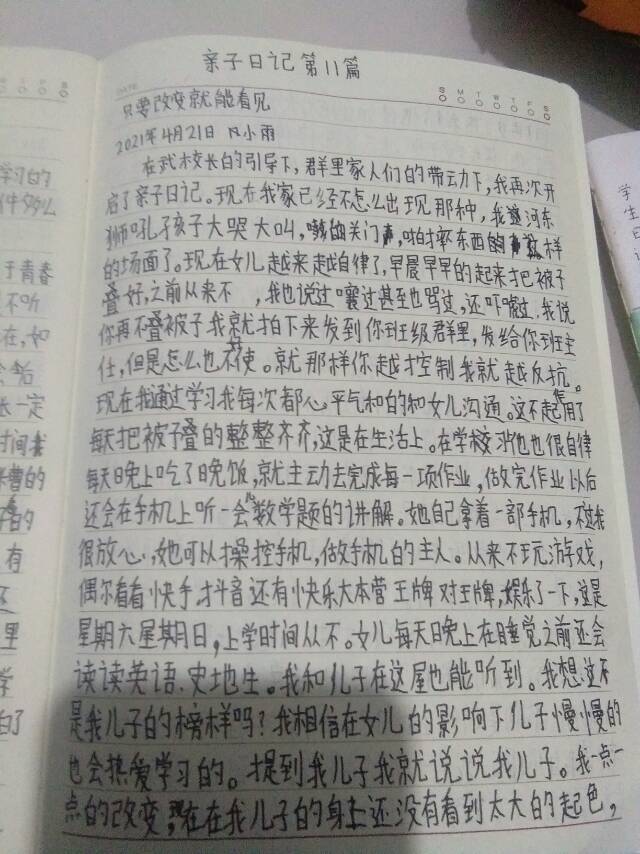 亲子日记第11篇
DATE
S M T W T F S
只要改变就能看见
2021年4月21日 小雨
在武校长的引导下,群里家人们的带动下,我再次开
启了亲子日记。现在我家已经不怎么出现那种,我这河东
狮吼,孩子大哭大叫,关门声,啪摔东西的声这样
的场面了。现在女儿越来越自律了,早晨早早的起来把被子
叠好,之前从来不,我也说过嚷过甚至也骂过,还吓唬过.我说
你再不叠被子我就拍下来发到你班级群里,发给你班主
任,但是怎么也不好使。就那样你越控制我就越反抗。
现在我通过学习我每次都心平气和的和女儿沟通。这不起作用了
每天把被子叠的整整齐齐,这是在生活上。在学校习也也很自律
每天晚上吃了晚饭,就主动去完成每一项作业,做完作业以后
还会在手机上听一会儿数学题的讲解。她自己拿着一部手机,不过我
很放心,她可以操控手机,做手机的主人。从来不玩游戏,
偶尔看看快手,抖音还有快乐大本营王牌对王牌,娱乐了一下,这是
星期六星期日,上学时间从不。女儿每天晚上在睡觉之前还会
读读英语、史地生。我和儿子在这屋也能听到。我想这不
是我儿子的榜样吗?我相信在女儿的影响下儿子慢慢的
也会热爱学习的。提到我儿子我就说说我儿子。我一点一
点的改变,现在在我儿子的身上还没有看到太大的起色,
学习的
于青春
不听
在,如
一定
时间我
的
有
里
学
学生日记